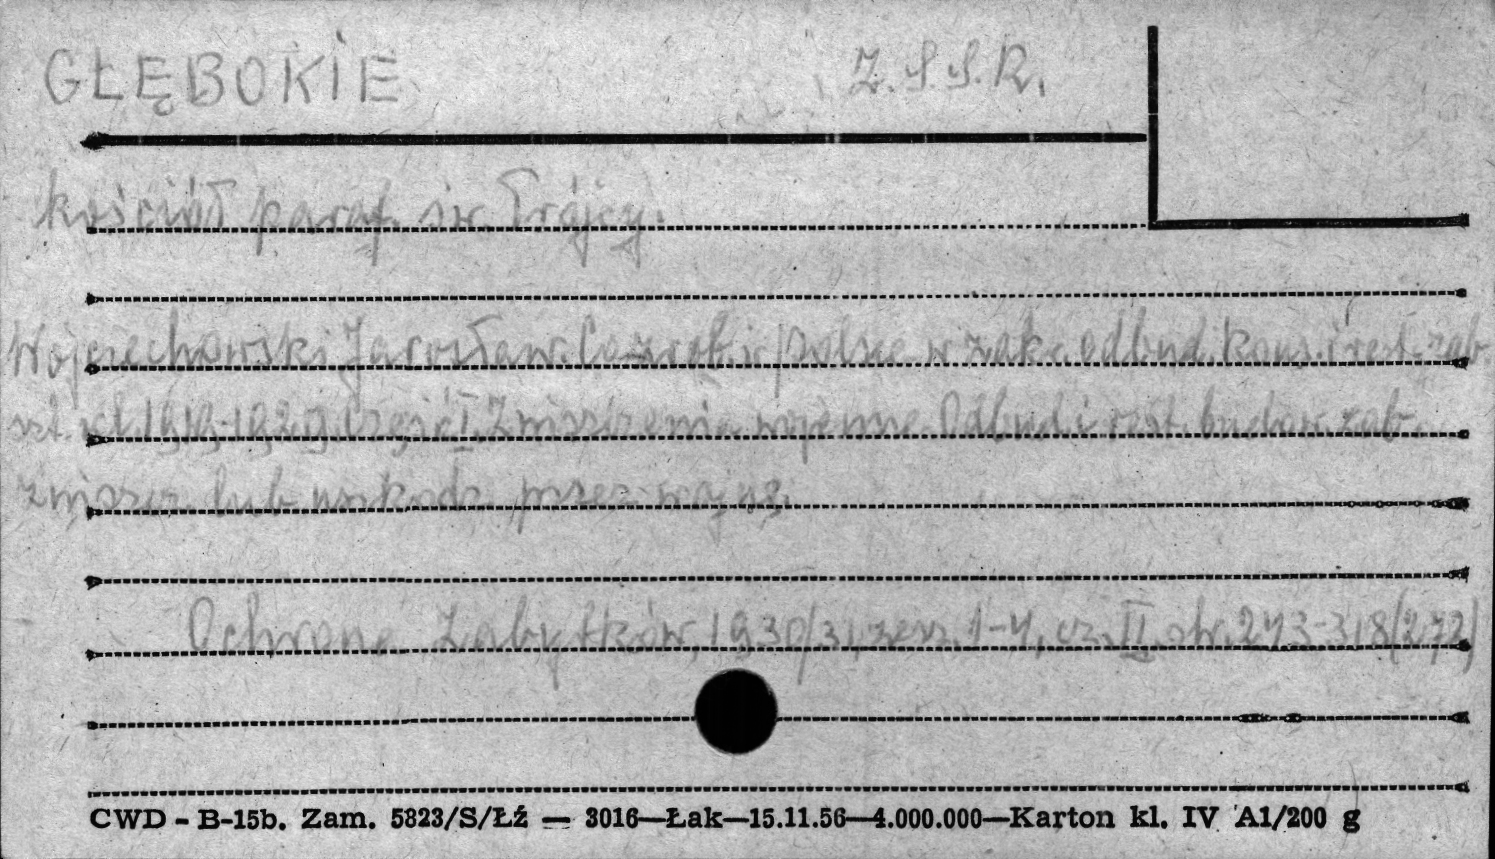 GŁĘBOKIE Z.S.S.R.
kościół paraf. św. Trójcy.
Wojciechowski Jarosław. Co zrob. w Polsce w zak. odbud. kons. i rest. zab.
szt. od 1919-1929. Część I. Zniszczenia wojenne. Odbud. i rest. budow. zab.
zniszcz. lub uszkodz. przez wojnę.
Ochrona Zabytków, 1930/31, zesz. 1-4, cz. II. str. 273-318 (272)
CWD - B-15b. Zam. 5823/S/Łź — 3016—Łak—15.11.56—4.000.000—Karton kl. IV A1/200 g